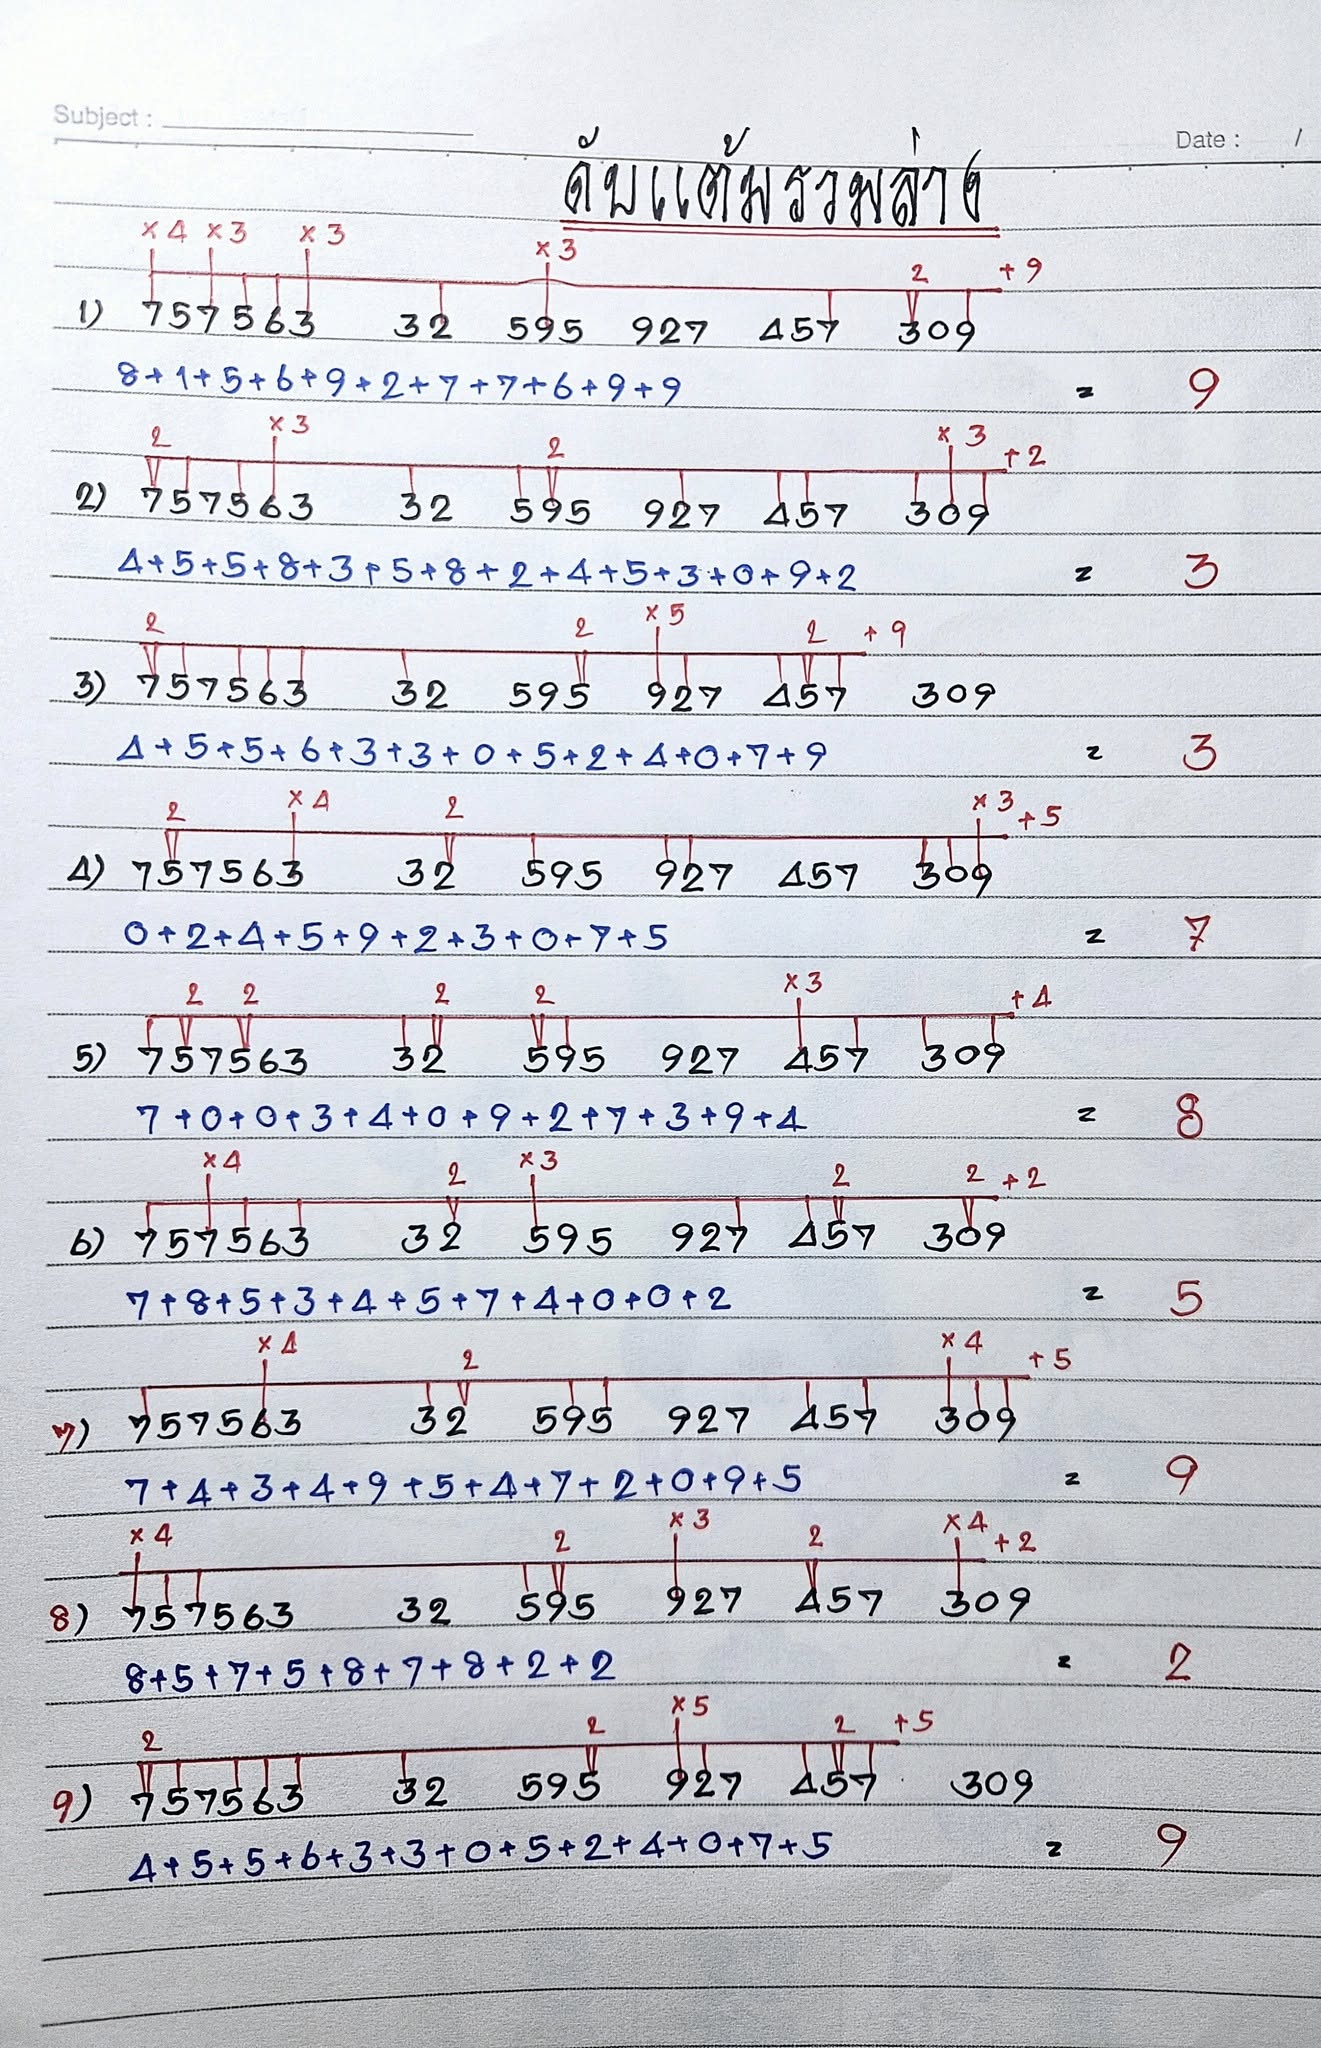 Subject :
Date : /
ดับแต้มรวมล่าง
×4 ×3 ×3 ×3 2 +9
1) 757563 32 595 927 457 309
8+1+5+6+9+2+7+7+6+9+9 = 9
2 ×3 2 ×3 +2
2) 757563 32 595 927 457 309
4+5+5+8+3+5+8+2+4+5+3+0+9+2 = 3
2 2 ×5 2 +9
3) 757563 32 595 927 457 309
4+5+5+6+3+3+0+5+2+4+0+7+9 = 3
2 ×4 2 ×3 +5
4) 757563 32 595 927 457 309
0+2+4+5+9+2+3+0+7+5 = 7
2 2 2 2 ×3 +4
5) 757563 32 595 927 457 309
7+0+0+3+4+0+9+2+7+3+9+4 = 8
×4 2 ×3 2 2 +2
6) 757563 32 595 927 457 309
7+8+5+3+4+5+7+4+0+0+2 = 5
×4 2 ×4 +5
7) 757563 32 595 927 457 309
7+4+3+4+9+5+4+7+2+0+9+5 = 9
×4 2 ×3 2 ×4 +2
8) 757563 32 595 927 457 309
8+5+7+5+8+7+8+2+2 = 2
2 2 ×5 2 +5
9) 757563 32 595 927 457 309
4+5+5+6+3+3+0+5+2+4+0+7+5 = 9